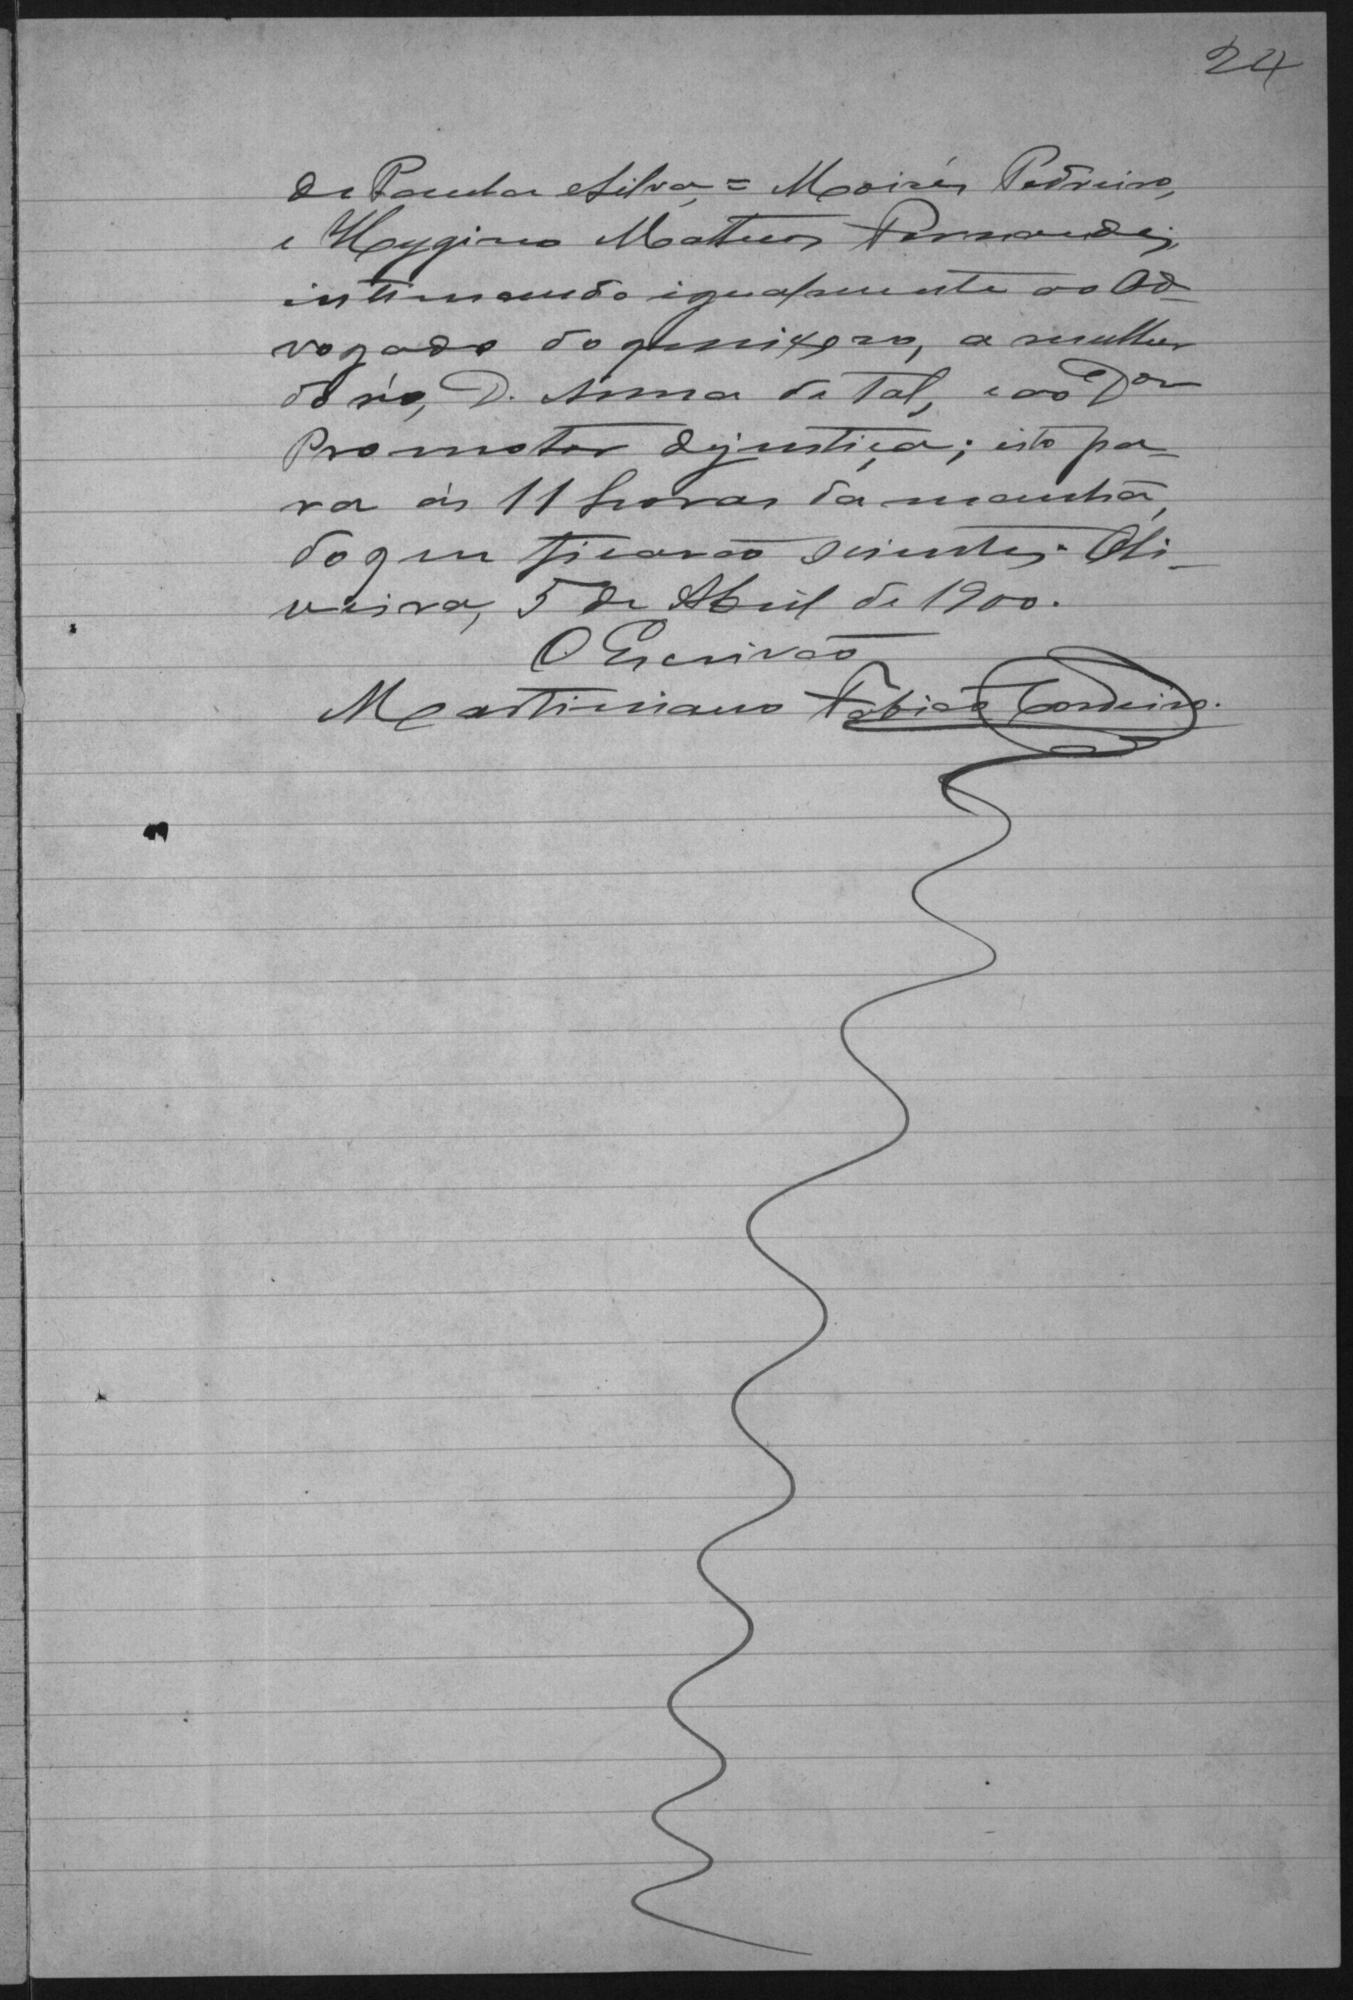 24
de Paula e Silva, = Moisés Pedreiro,
e Hygino Matheus Fernandes,
intimando igualmente ao Ad-
vogado do queixoso, a mulher
do réo, D. Anna de Tal, e ao Dor
Promotor de justiça; isto pa-
ra ás 11 horas da manhã,
do que ficarão scientes. Oli-
veira, 5 de Abril de 1900.
O Escrivão
Martiniano Fabião Cordeiro.